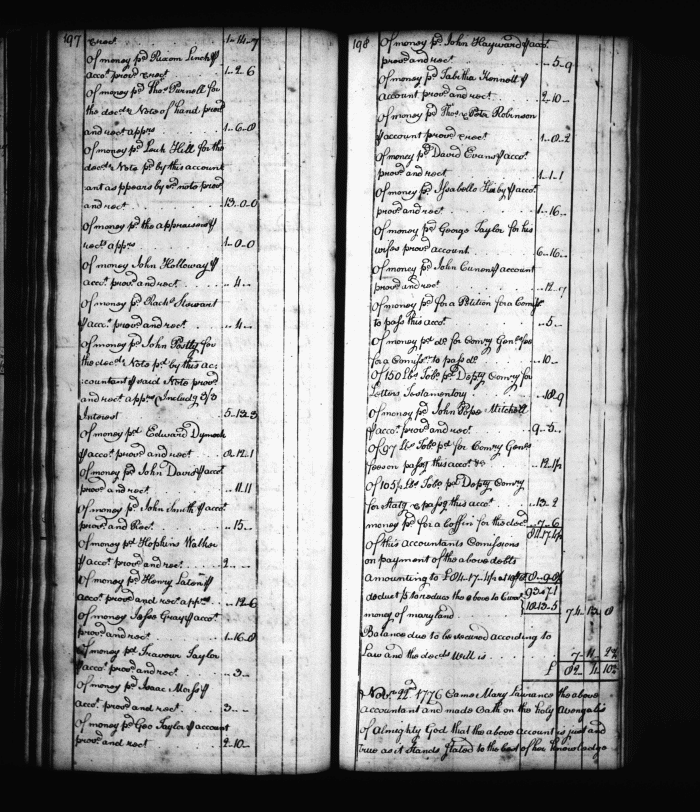 197
& rect . . . . 1-14-7
Of money pd Rixom Linch p
acct provd & rect . . . 1-2-6
Of money pd Thos Purnell for
the decds Note of hand provd
and rect apprs . . . . 1-6-8
Of money pd Hill for the
decds Note pd by this account
ant as appears by sd note provd
and rect . . . . 13-0-0
Of money pd the appraisers p
rect apprs . . . . 1-0-0
Of money John Holloway p
acct provd and rect . . . 4 . .
Of money pd Rachl Stewart
p acct provd and rect . . . 4 . .
Of money pd John Postly for
the decds Note pd by this ac-
countant p said Note provd
and rect apprs (Includg
Interest . . . . 5-13-3
Of money pd Edward Dymock
p acct provd and rect . . 2-12-1
Of money pd John Davis p acct
provd and rect . . . 11-11
Of money pd John Smith p acct
provd and Rect . . . 15 . .
Of money pd Hopkins Walker
p acct provd and rect . . 2 . . .
Of money pd Henry p
acct provd and rect apprs . . 12-6
Of money pd Gray p acct
provd and rect . . . 1-16-8
Of money pd Travour Taylor
p acct provd and rect . . . 3 . .
Of money pd Isaac p
acct provd and rect . . . 3 . . .
Of money pd Geo Taylor p account
provd and rect . . . 2-10 . .
198
Of money pd John Hayward p acct
provd and rect . . . . 5-9
Of money pd Tabitha p
account provd and rect . . . 2-10 . .
Of money pd Thos & Peter Robinson
p account provd & rect . . . 1-0-2
Of money pd David Evans p acct
provd and rect . . . . 1-1-1
Of money pd Isabella p acct
provd and rect . . . . 1-16 . .
Of money pd George Taylor for his
wifes provd account . . . 6-16 . .
Of money pd John p account
provd and rect . . . . 12-7
Of money pd for a Petition for a Comss
to pass this acct . . . . 5 . .
Of money pd do for Comry Genls fee
for a Comisn to pass do . . . 10 . .
Of 150 Lbs Tobo pd Depty Comry for
Letters Testamentory . . . 18-9
Of money pd John Pope Mitchell
p acct provd and rect . . . 9-5 . .
Of 97 Lbs Tobo pd for Comry Genls
fees on passg this acct &c . . . 12-1½
Of 105½ Lbs Tobo pd Depty Comry
for Statg & passg this acct . . . 13-2
money pd for a Coffin for the decd . . 7-6
84-17-4½
Of this Accountants Comissions
on payment of the above debts
amounting to £84-17-4½ at 10 pCt 8-9-8½
93-7-1
deduct ⅕ to reduce the above to Curt } 18-13-5
money of maryland . . . . 74-13-8
Balance due to be secured according to
Law and the decds Will is . . . . 7-11-2½
£ 82-4-10½
Novr 22d 1776 Came Mary Lawrance the above
accountant and made Oath on the holy Evangelis
of Almighty God that the above Account is just and
true as it Stands Stated to the best of her Knowledge